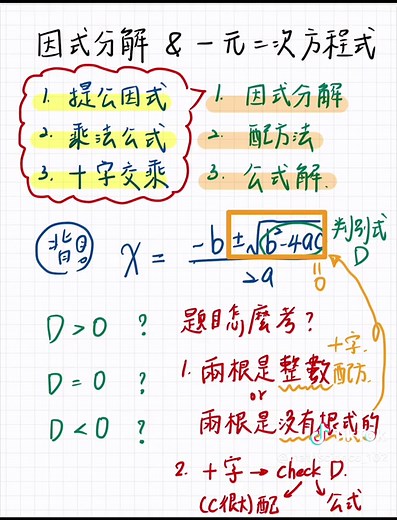 因式分解 & 一元二次方程式
1. 提公因式
2. 乘法公式
3. 十字交乘
1. 因式分解
2. 配方法
3. 公式解.
背
x = -b ± √(b²-4ac) / 2a
判別式
D
= 0
D > 0 ?
D = 0 ?
D < 0 ?
題目怎麼考?
十字.
1. 兩根是整數 配方.
or
兩根是沒有根式的
2. 十字 → check D.
(C很大) 配 公式